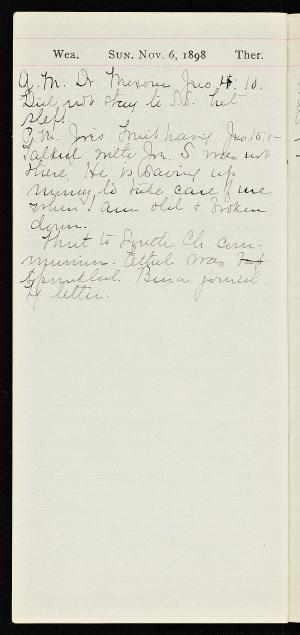 Wea. SUN. NOV. 6, 1898 Ther.
A. M. Dr. Jno 15: 10.
Did not stay to S.S. but
slept.
P. M. Jno. 15: 1-
Talked with Joe. S. was not
there. He is saving up
money to take care of me
when I am old & broken
down.
Went to South Ch. com-
munion. Ethel was
sprinkled. joined
by letter.